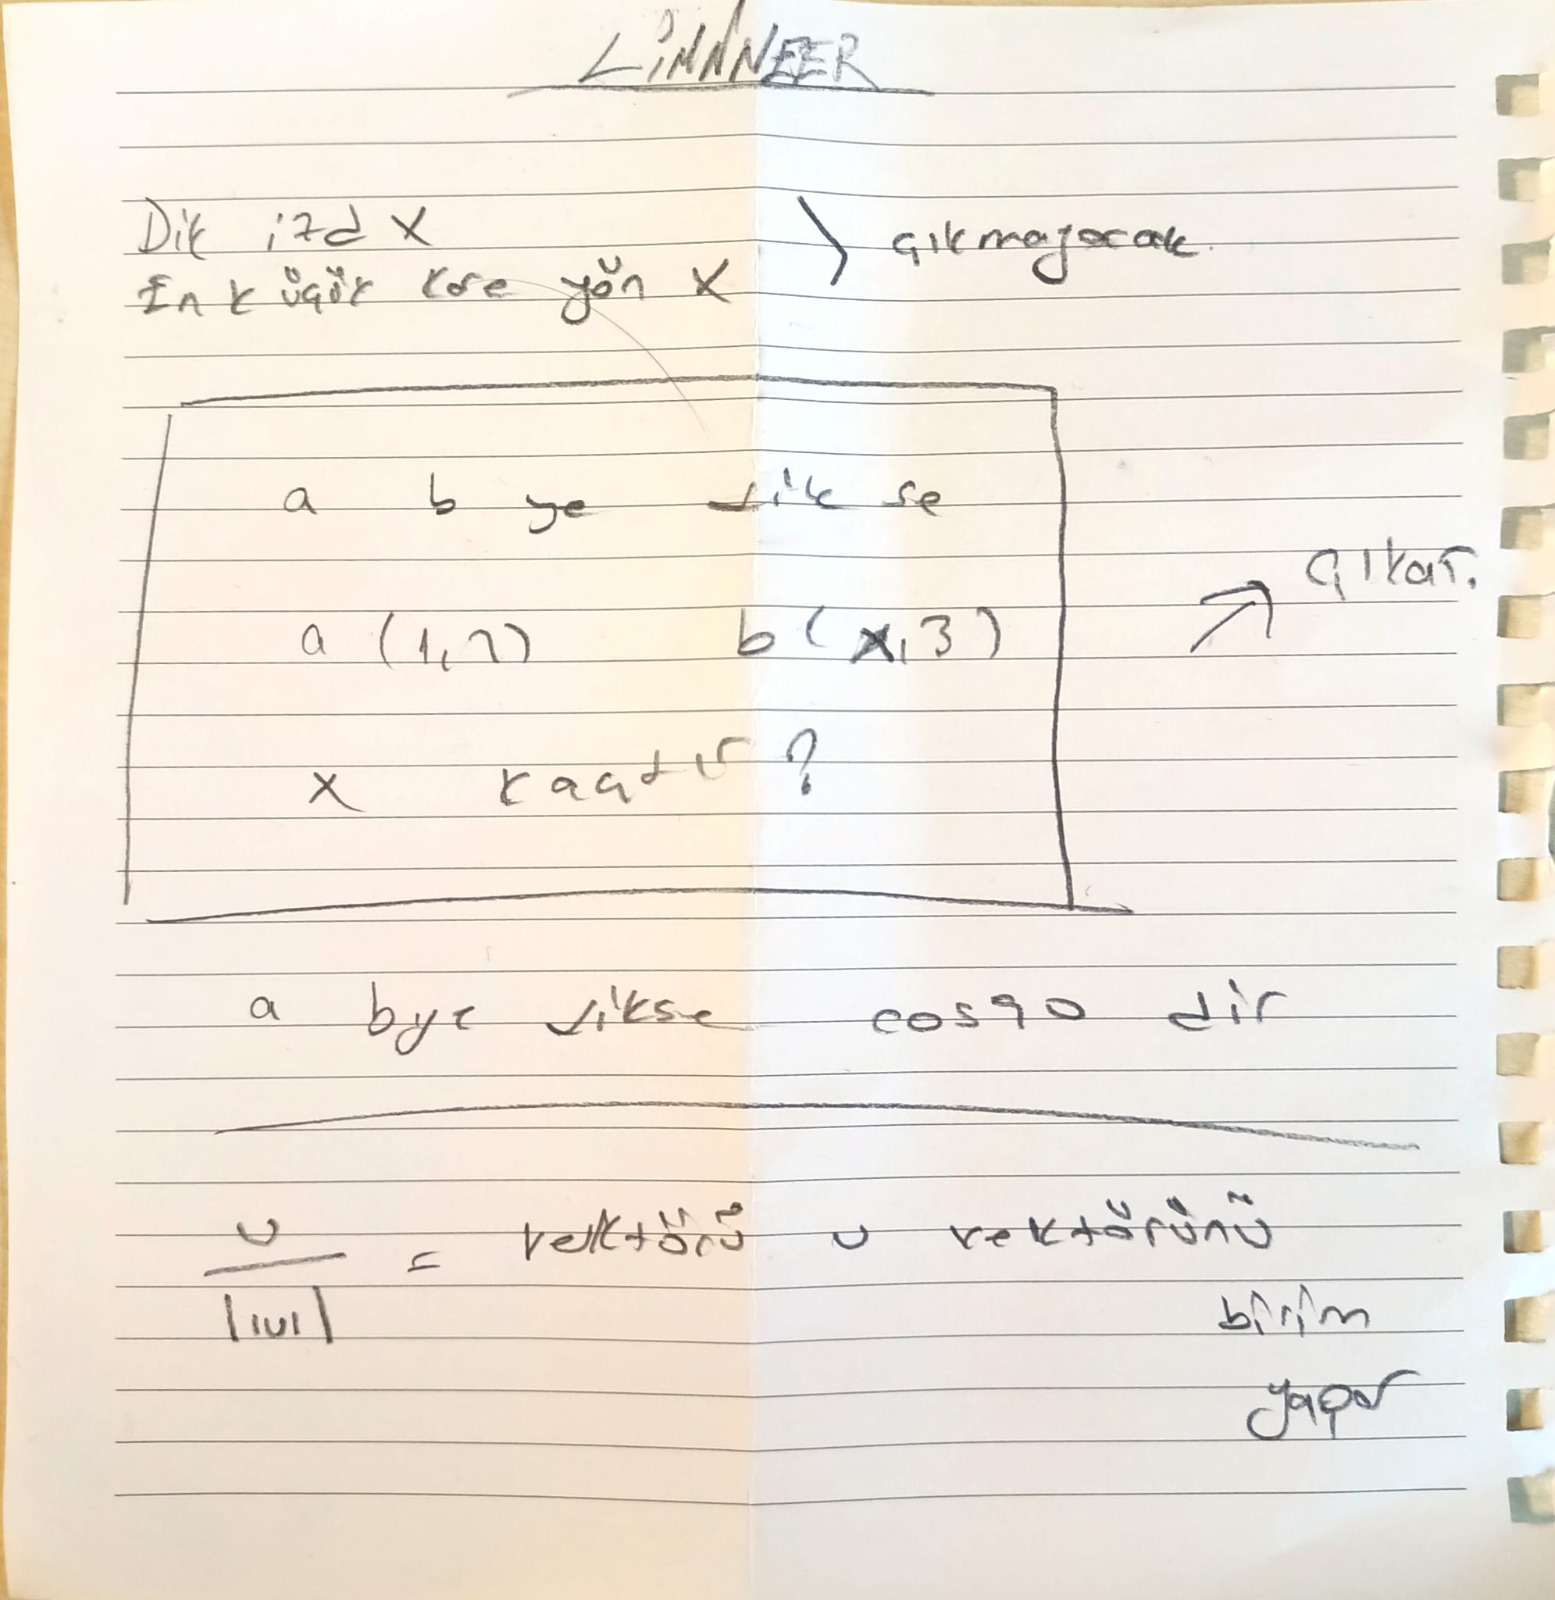 LİNNNEER
Dik izd X
En küçük kare yön X > çıkmayacak.
a b ye dik se
a (1,2) b(x,3)
x kaçtır?
çıkar.
a bye dikse cos90 dir
u
= vektörü u vektörünü
||u||
birim
yapar